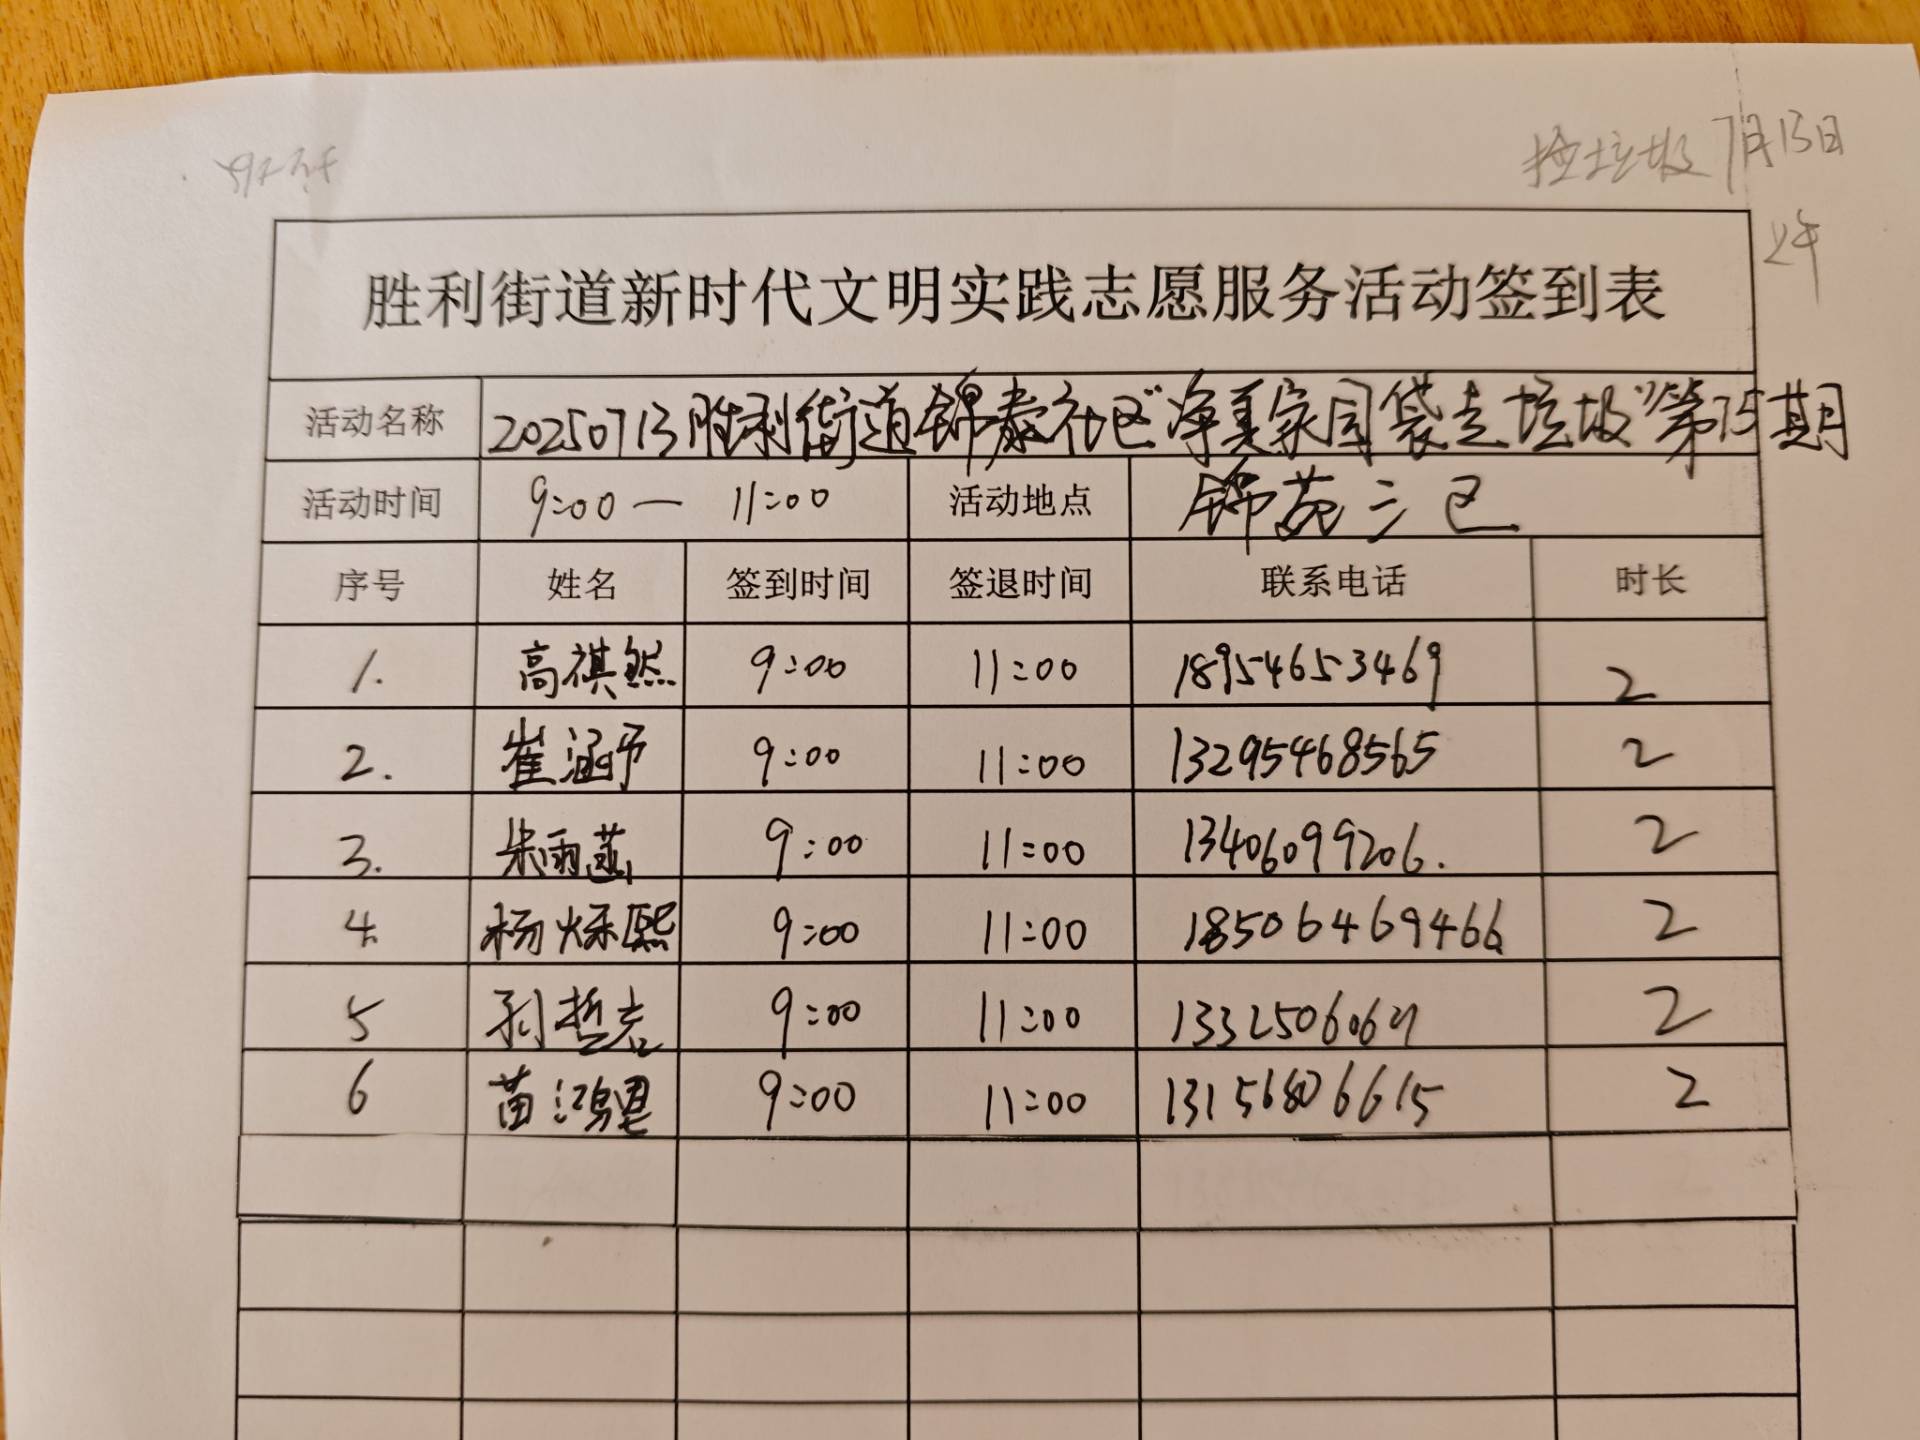 捡垃圾7月13日
上午
胜利街道新时代文明实践志愿服务活动签到表
活动名称 20250713胜利街道锦泰社区“净美家园袋走垃圾”第75期
活动时间 9:00— 11:00 活动地点 锦苑三区
序号 姓名 签到时间 签退时间 联系电话 时长
1. 高祺然 9:00 11:00 18954653469 2
2. 崔涵予 9:00 11:00 13295468565 2
3. 朱雨菡 9:00 11:00 13406099206. 2
4. 杨烁熙 9:00 11:00 18506469466 2
5 孙哲 9:00 11:00 2
6 苗鸿 9:00 11:00 13156806615 2